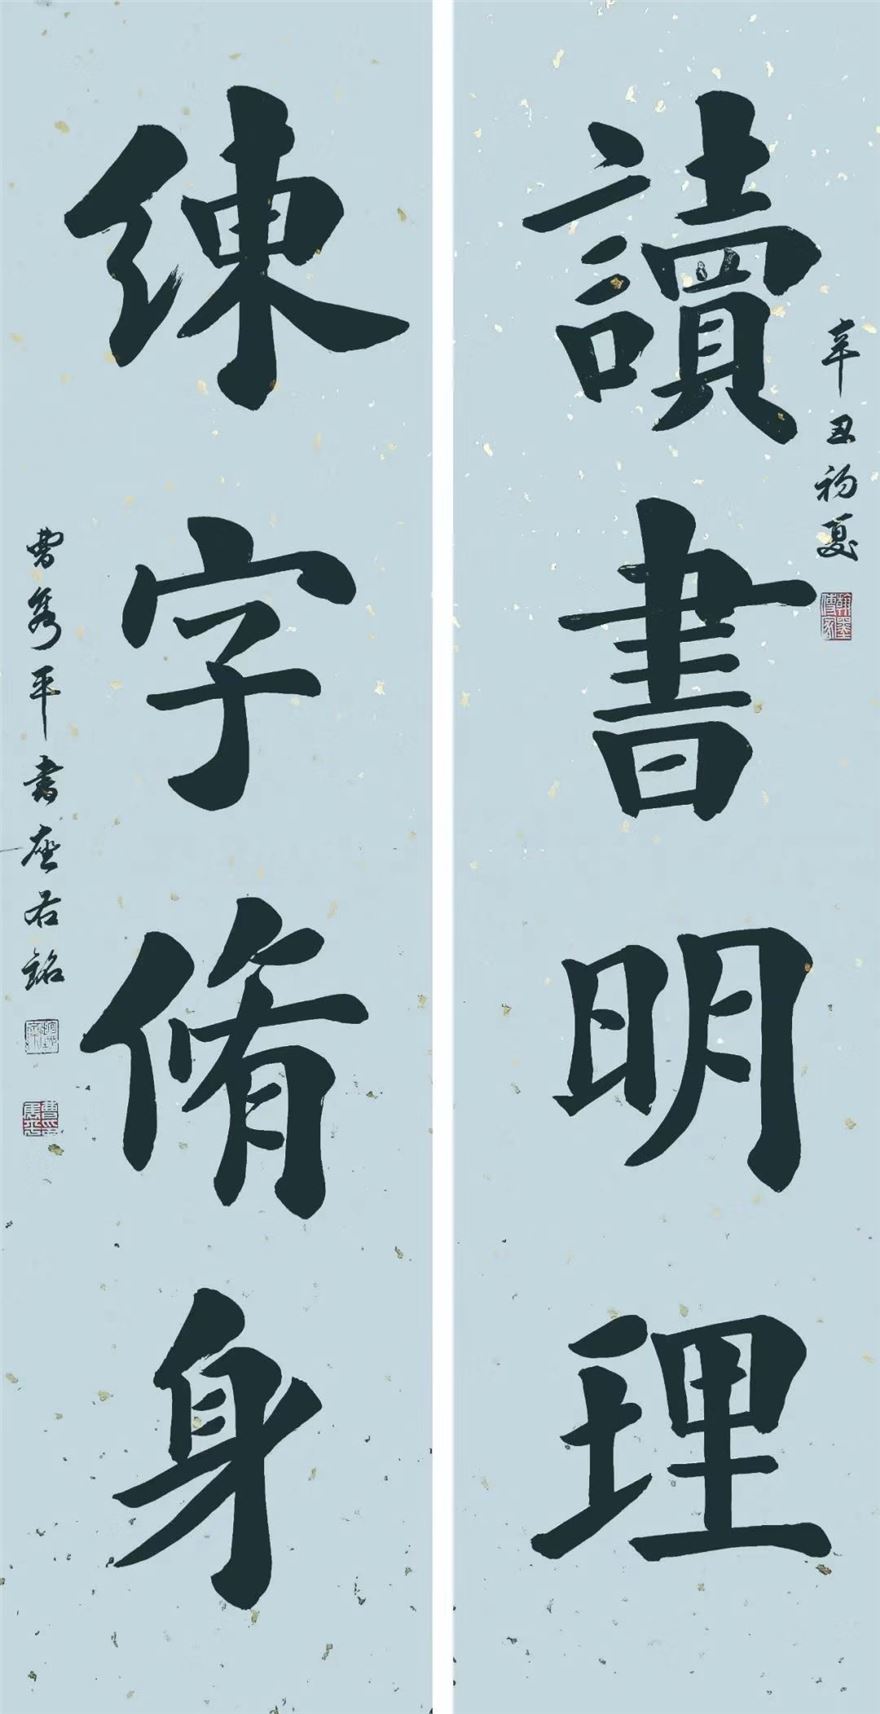 辛丑初夏
讀書明理
練字脩身
曹隽平書座右銘